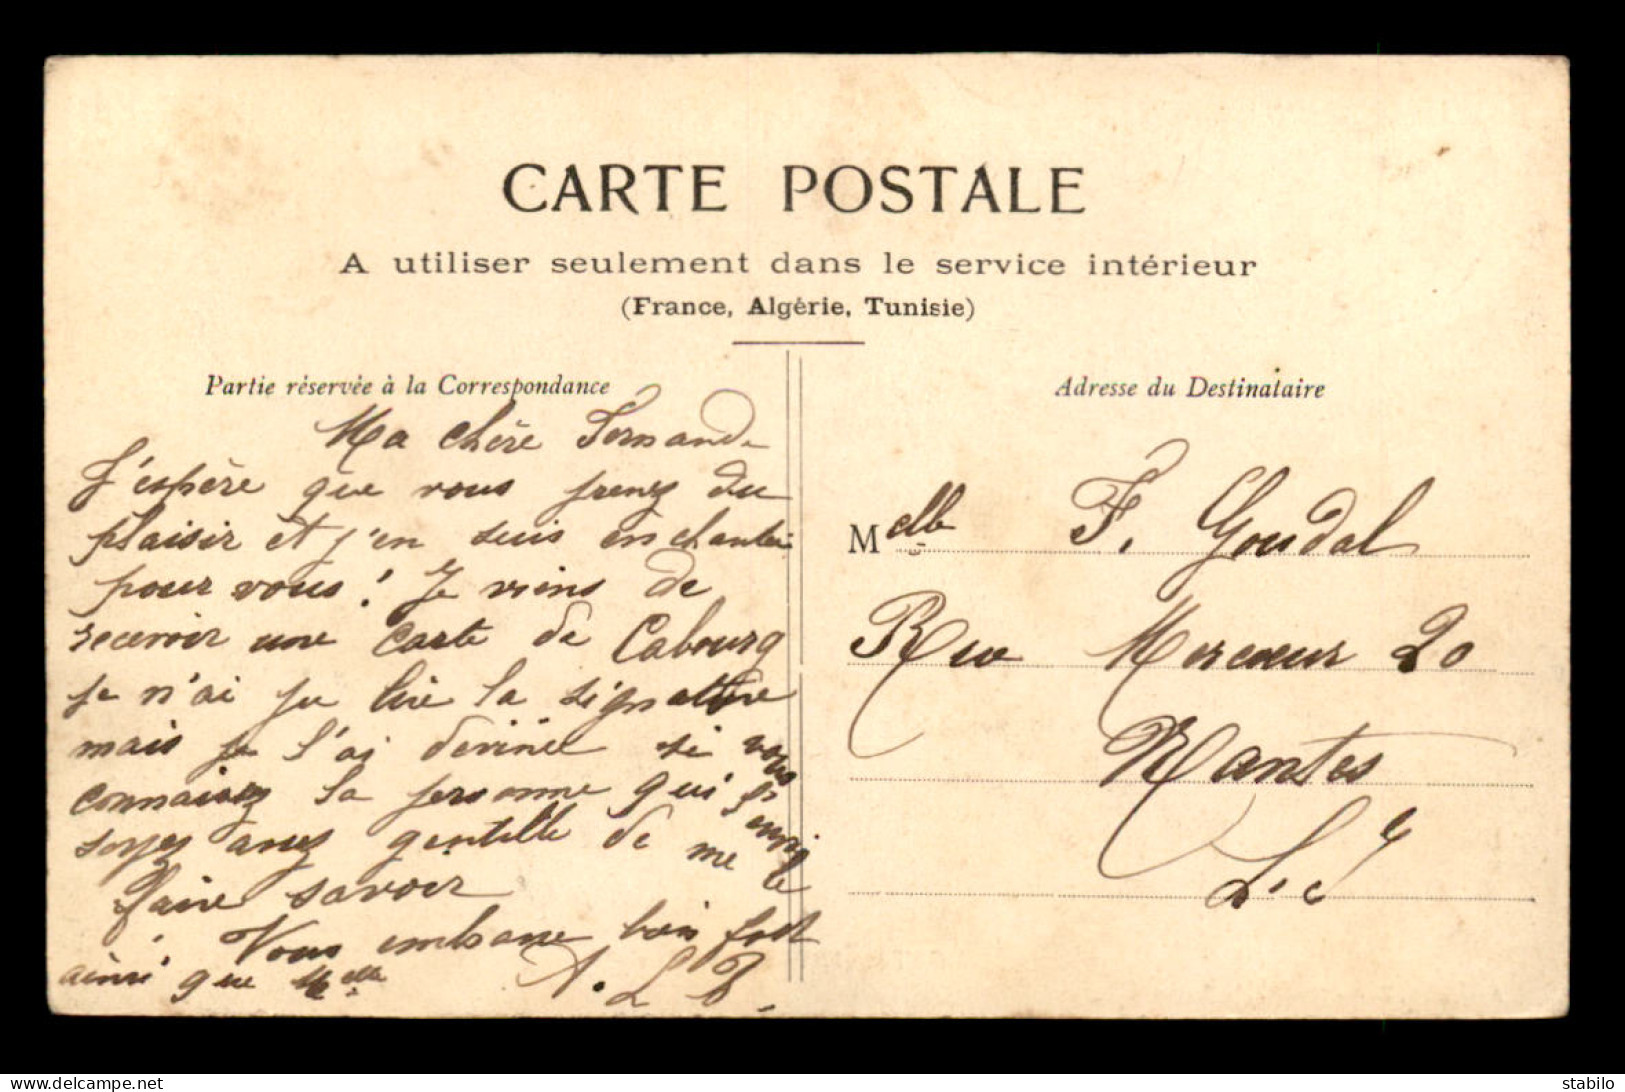 CARTE POSTALE
A utiliser seulement dans le service intérieur
(France, Algérie, Tunisie)
Partie réservée à la Correspondance
Ma chère Fernande
J'espère que vous prenez du
plaisir et j'en suis enchantée
pour vous! Je viens de
recevoir une carte de Cabourg
je n'ai pu lire la signature
mais je l'ai devinée si vous
connaissez la personne qui
soyez assez gentille de me le
faire savoir
Vous embrasse bien fort
ainsi que Melle
A. L B.
Adresse du Destinataire
Melle F. Goudal
Rue Mercœur 20
Nantes
L. Ie
delcampe.net
stabilo